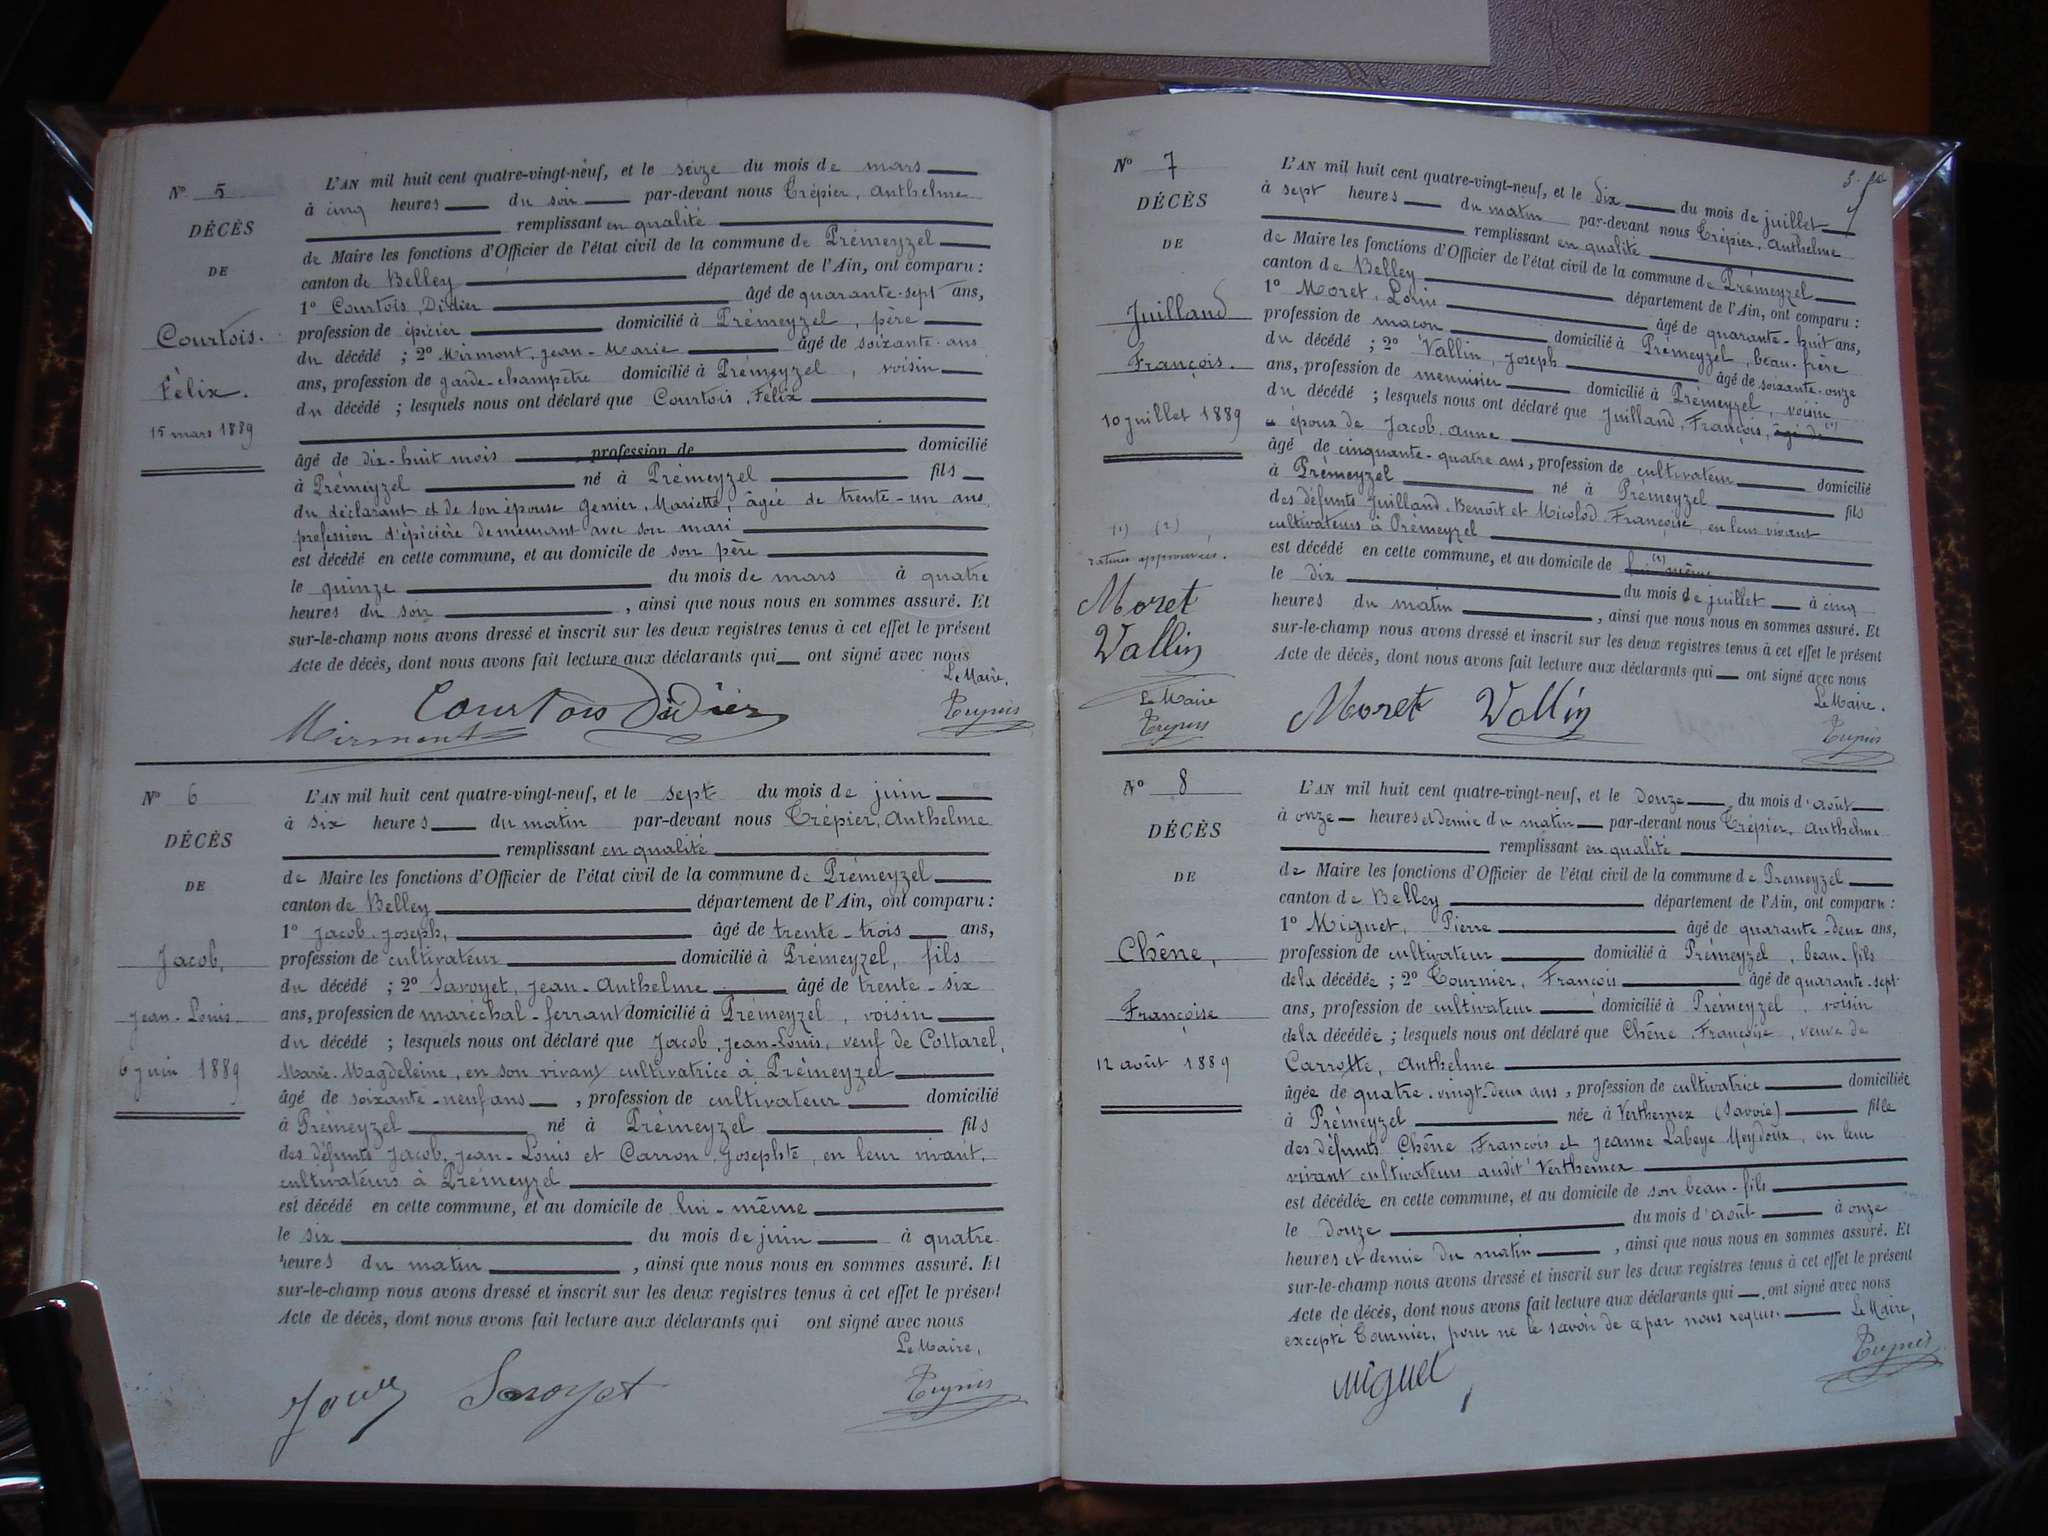 N° 5
DÉCÈS
DE
Courtois.
Félix.
15 mars 1889
L'AN mil huit cent quatre-vingt-neuf, et le seize du mois de mars
à cinq heures du soir par-devant nous Trépier, Anthelme
remplissant en qualité
de Maire les fonctions d'Officier de l'état civil de la commune de Prémeyzel
canton de Belley département de l'Ain, ont comparu :
1° Courtois, Didier âgé de quarante-sept ans,
profession de épicier domicilié à Prémeyzel, père
du décédé ; 2° Mirmont, Jean-Marie âgé de soixante ans
ans, profession de garde-champêtre domicilié à Prémeyzel, voisin
du décédé ; lesquels nous ont déclaré que Courtois, Félix
âgé de dix-huit mois, profession de domicilié
à Prémeyzel né à Prémeyzel fils
du déclarant et de son épouse Genier, Mariette, âgée de trente-un ans
profession d'épicière demeurant avec son mari
est décédé en cette commune, et au domicile de son père
le quinze du mois de mars à quatre
heures du soir, ainsi que nous nous en sommes assuré. Et
sur-le-champ nous avons dressé et inscrit sur les deux registres tenus à cet effet le présent
Acte de décès, dont nous avons fait lecture aux déclarants qui ont signé avec nous
Le Maire,
Mirmont Courtois Didier
N° 6
DÉCÈS
DE
Jacob,
Jean-Louis
6 juin 1889
L'AN mil huit cent quatre-vingt-neuf, et le sept du mois de juin
à six heures du matin par-devant nous Trépier, Anthelme
remplissant en qualité
de Maire les fonctions d'Officier de l'état civil de la commune de Prémeyzel
canton de Belley département de l'Ain, ont comparu :
1° Jacob, Joseph, âgé de trente-trois ans,
profession de cultivateur domicilié à Prémeyzel, fils
du décédé ; 2° Savoyet, Jean-Anthelme âgé de trente-six
ans, profession de maréchal-ferrant domicilié à Prémeyzel, voisin
du décédé ; lesquels nous ont déclaré que Jacob, Jean-Louis, veuf de Cottarel,
Marie-Magdeleine, en son vivant cultivatrice à Prémeyzel
âgé de soixante-neuf ans, profession de cultivateur domicilié
à Prémeyzel né à Prémeyzel fils
des défunts Jacob, Jean-Louis et Carron, Josephte, en leur vivant,
cultivateurs à Prémeyzel
est décédé en cette commune, et au domicile de lui-même
le six du mois de juin à quatre
heures du matin, ainsi que nous nous en sommes assuré. Et
sur-le-champ nous avons dressé et inscrit sur les deux registres tenus à cet effet le présent
Acte de décès, dont nous avons fait lecture aux déclarants qui ont signé avec nous
Le Maire,
Savoyet
N° 7
DÉCÈS
DE
Juilland
François.
10 juillet 1889
(1) (2)
ratures approuvées.
Moret
Vallin
Le Maire
L'AN mil huit cent quatre-vingt-neuf, et le dix du mois de juillet
à sept heures du matin par-devant nous Trépier, Anthelme
remplissant en qualité
de Maire les fonctions d'Officier de l'état civil de la commune de Prémeyzel
canton de Belley département de l'Ain, ont comparu :
1° Moret, âgé de quarante-huit ans,
profession de maçon domicilié à Prémeyzel, beau-frère
du décédé ; 2° Vallin, Joseph âgé de soixante-onze
ans, profession de menuisier domicilié à Prémeyzel, voisin
du décédé ; lesquels nous ont déclaré que Juilland, François, âgé de (1)
époux de Jacob Anne
âgé de cinquante-quatre ans, profession de cultivateur domicilié
à Prémeyzel né à Prémeyzel fils
des défunts Juilland, Benoît et Micolod, Françoise, en leur vivant
cultivateurs à Prémeyzel
est décédé en cette commune, et au domicile de lui (2) même
le dix du mois de juillet à cinq
heures du matin, ainsi que nous nous en sommes assuré. Et
sur-le-champ nous avons dressé et inscrit sur les deux registres tenus à cet effet le présent
Acte de décès, dont nous avons fait lecture aux déclarants qui ont signé avec nous
Le Maire.
Moret Vallin
N° 8
DÉCÈS
DE
Chêne,
Françoise
12 août 1889
L'AN mil huit cent quatre-vingt-neuf, et le douze du mois d'août
à onze heures et demie du matin par-devant nous Trépier, Anthelme
remplissant en qualité
de Maire les fonctions d'Officier de l'état civil de la commune de Prémeyzel
canton de Belley département de l'Ain, ont comparu :
1° Miguet, Pierre âgé de quarante-deux ans,
profession de cultivateur domicilié à Prémeyzel, beau-fils
de la décédée ; 2° Tournier, François âgé de quarante-sept
ans, profession de cultivateur domicilié à Prémeyzel, voisin
de la décédée ; lesquels nous ont déclaré que Chêne, Françoise, veuve de
Carrotte, Anthelme
âgée de quatre-vingt-deux ans, profession de cultivatrice domiciliée
à Prémeyzel née à Verthemex (Savoie) fille
des défunts Chêne, François et Jeanne Labeye Meydoux, en leur
vivant cultivateurs audit Verthemex
est décédée en cette commune, et au domicile de son beau-fils
le douze du mois d'août à onze
heures et demie du matin, ainsi que nous nous en sommes assuré. Et
sur-le-champ nous avons dressé et inscrit sur les deux registres tenus à cet effet le présent
Acte de décès, dont nous avons fait lecture aux déclarants qui ont signé avec nous
excepté Tournier, pour ne le savoir de ce par nous requis. Le Maire,
Miguet